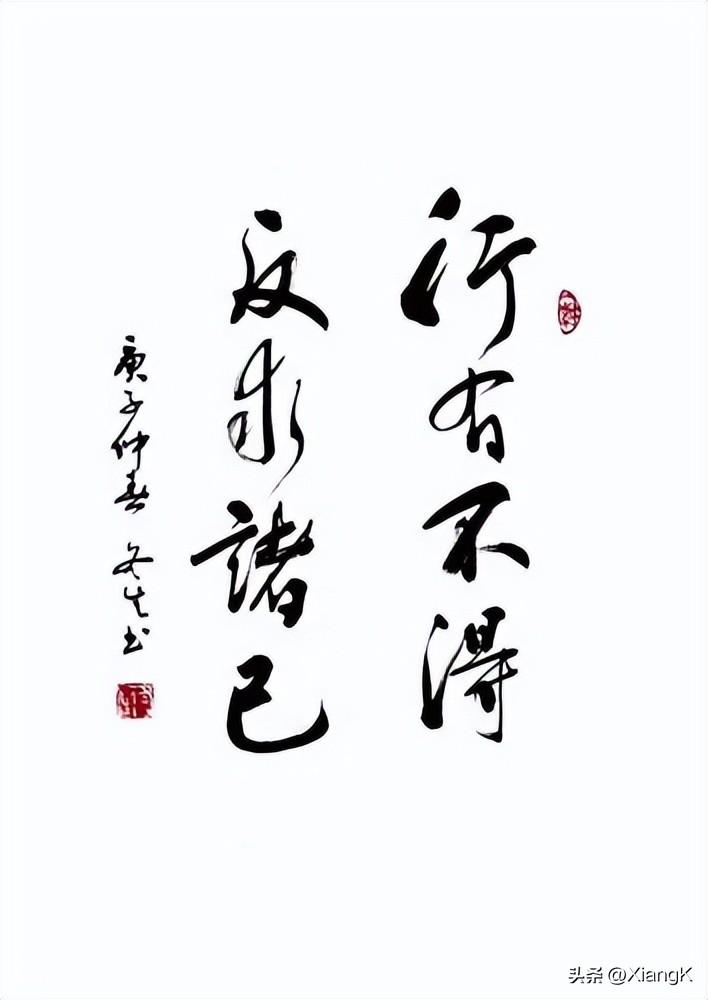 行有不得
反求諸己
庚子仲春 冬生书
头条 @XiangK